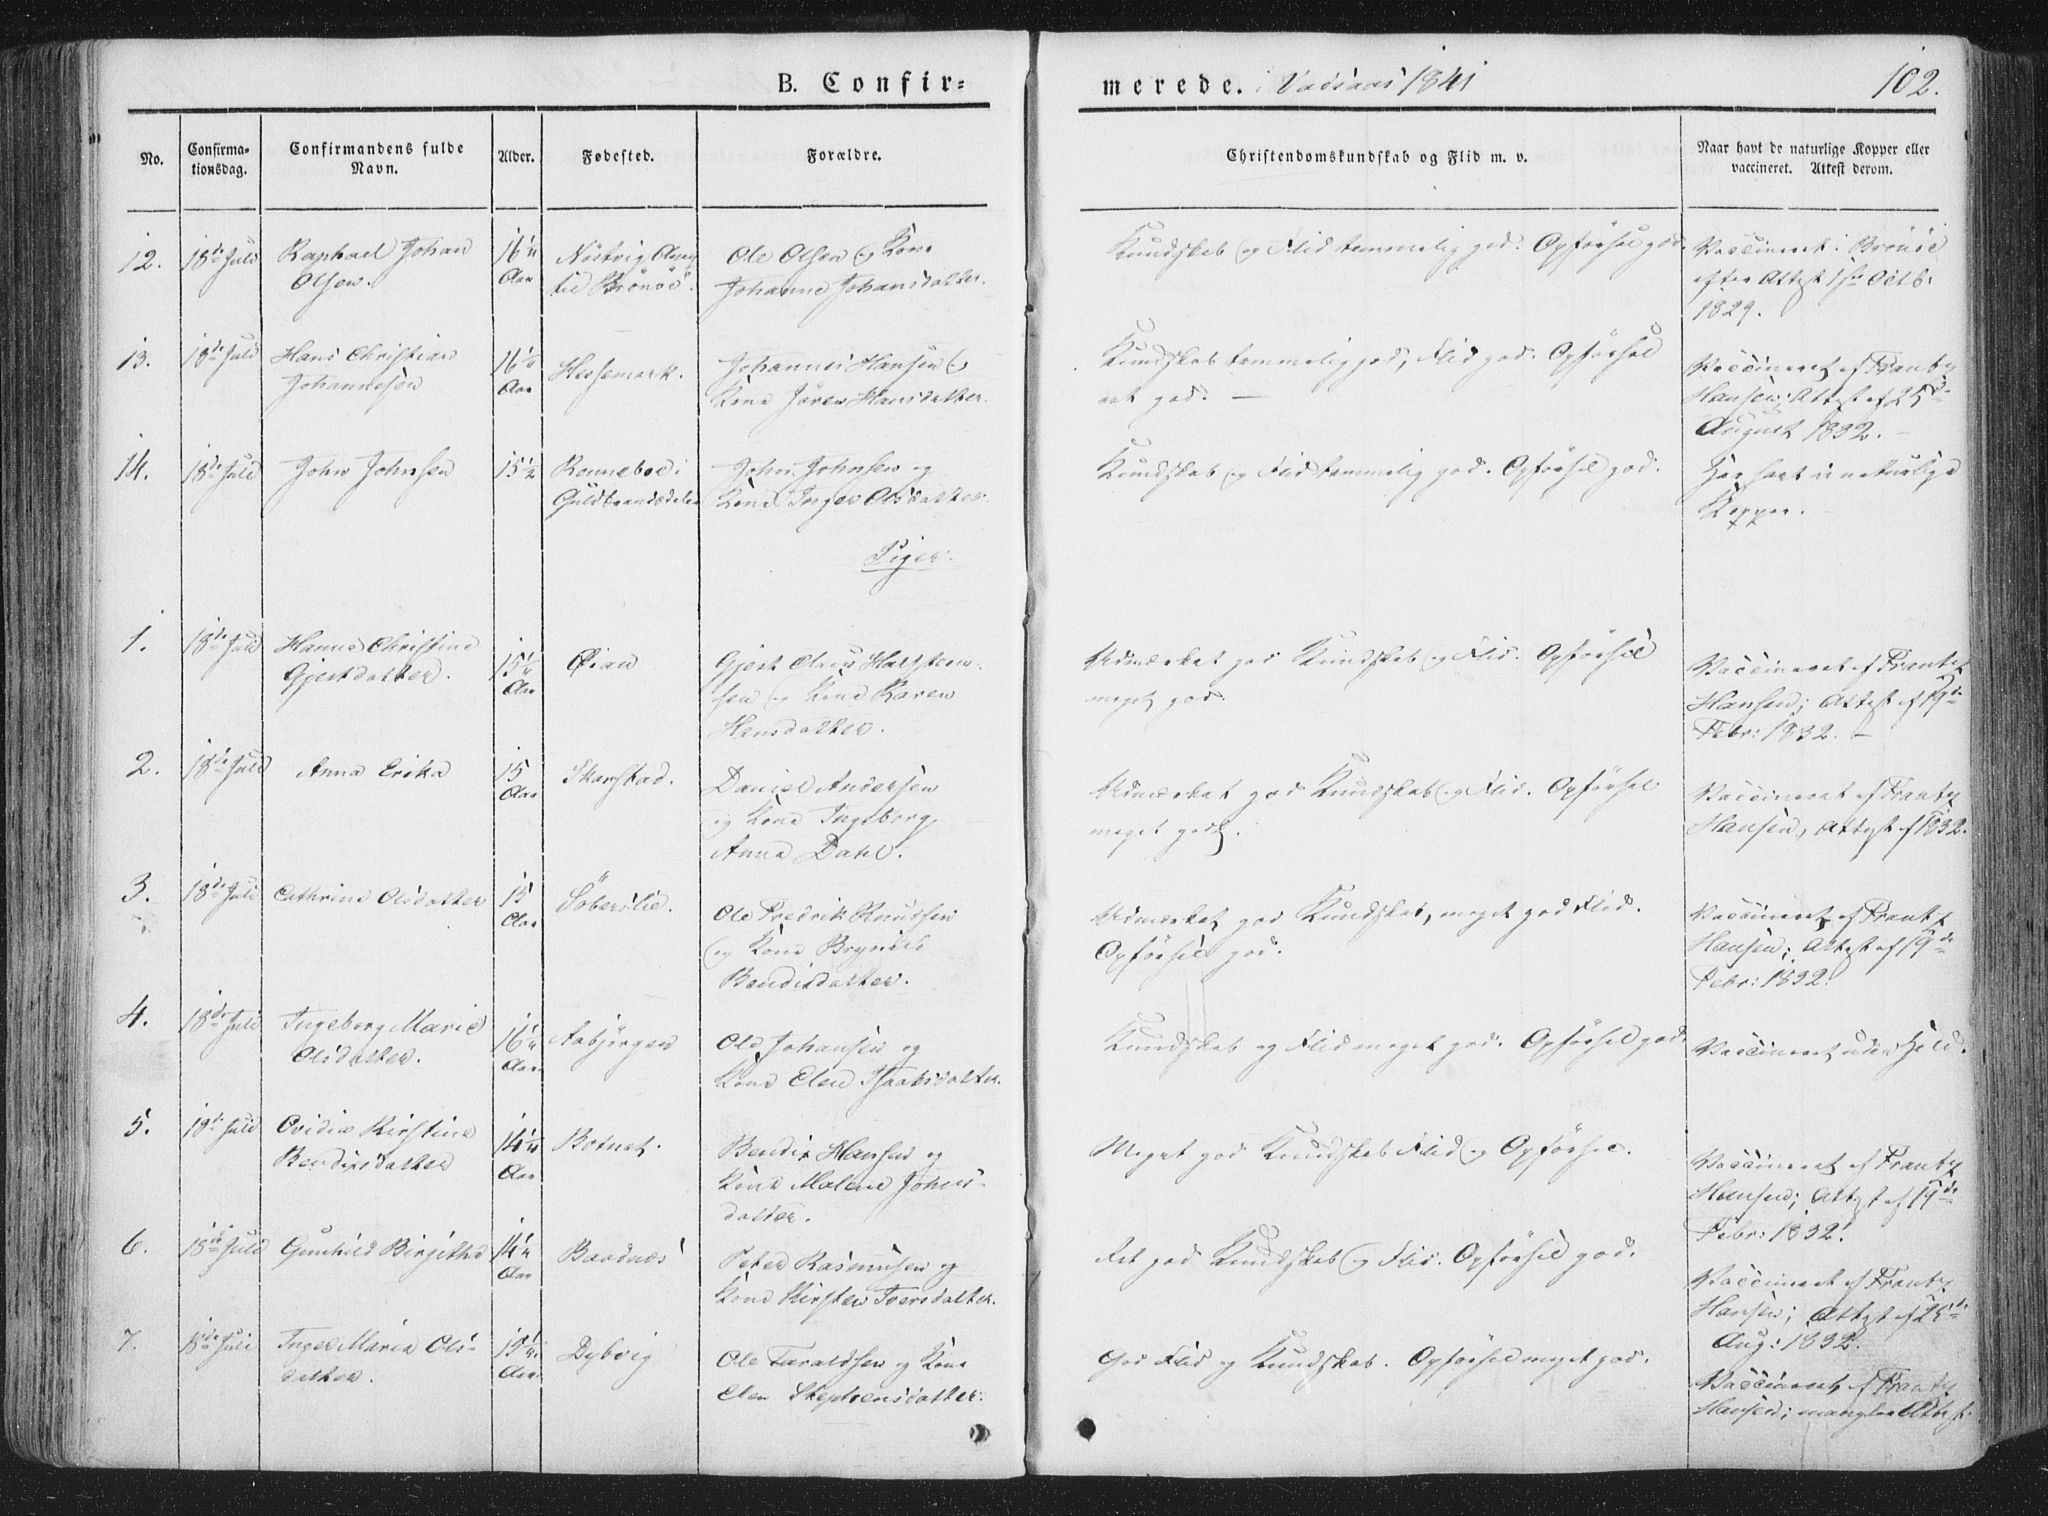 B. Confir=
merede. i Vadsaas 1841
102.
No.
Confirma-
tionsdag.
Confirmandens fulde
Navn.
Alder.
Fødested.
Forældre.
Christendomskundskab og Flid m. v.
Naar havt de naturlige Kopper eller
vaccineret. Attest derom.
12.
18de Juli
Raphael Johan
Olsen.
16¼
Aar
til Brönöe.
Ole Olsen og Kone
Johanne Johansdatter.
Kundskab og Flid temmelig god. Opförsel god.
Vaccineret i Brönöe
efter Attest Octb:
1829.
13.
18de Juli
Hans Christian
Johannesen
16¼
Aar
Hessemark.
Johannes Hansen og
Kone Jören Hansdatter.
Kundskab temmelig god, Flid god. Opförsel
ret god. —
Vaccineret af Frantz
Hansen; Attest af 25de
August 1832. —
14.
18de Juli
John Johnsen
15½
Ronneboe i
Guldbrandsdalen
John Johnsen og
Kone Inger Olsdatter.
Kundskab og Flid temmelig god. Opförsel god.
Har havt de naturlige
Kopper. —
Piger.
1.
18de Juli
Hanna Christine
Gjertdatter.
15¼
Aar
Øian
Gjert Claus Halsteen-
sen og Kone Karen
Hansdatter.
Udmærket god Kundskab og Flid. Opförsel
meget god.
Vaccineret af Frantz
Hansen; Attest af 19de
Febr: 1832. —
2.
18de Juli
Anna Erika
15
Aar
Skarstad.
Daniel Andersen
og Kone Ingeborg
Anna Dahl.
Udmærket god Kundskab og Flid. Opförsel
meget god.
Vaccineret af Frantz
Hansen, Attest af 1832.
3.
18de Juli
Cathrine Olsdatter
15
Aar
Söberslie.
Ole Fredrik Knutsen
og Kone Bryndel
Bendixdatter.
Udmærket god Kundskab, meget god Flid.
Opförsel god.
Vaccineret af Frantz
Hansen; Attest af 19de
Febr: 1832.
4.
18de Juli
Ingeborg Marie
Olsdatter.
16¼
Aar
Aabjörgen
Ole Johansen og
Kone Elen Isaaksdatter.
Kundskab og Flid meget god. Opförsel god.
Vaccineret uden Held.
5.
18de Juli
Ovidia Kirstine
Bendixdatter
14¼
Aar
Botnet.
Bendix Hansen og
Kone Malene Johns-
datter.
Meget god Kundskab Flid og Opförsel.
Vaccineret af Frantz
Hansen; Attest af 19de
Febr: 1832.
6.
18de Juli
Gunhild Birgitha
14¼
Aar
Baadnæs
Peter Rasmusen og
Kone Kirsten Toersdatter.
Ret god Kundskab og Flid. Opförsel god.
Vaccineret af Frantz
Hansen; Attest af 25de
Aug: 1832.
7.
18de Juli
Inger Maria Ols-
datter.
15¼
Aar
Dybvig
Ole Taraldsen og Kone
Elen Stephensdatter.
God Flid og Kundskab. Opförsel meget god.
Vaccineret af Frantz
Hansen; mangler Attest.